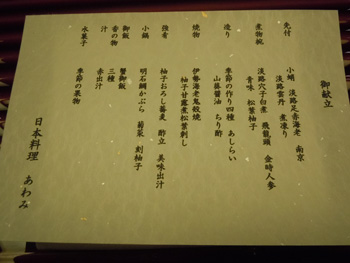 御献立
先付
小蛸 淡路足赤海老 南京
淡路雲丹 煮凍り
煮物椀
淡路穴子白煮 飛龍頭 金時人参
青味 松葉柚子
造り
季節の作り四種 あしらい
山葵醤油 ちり酢
焼物
伊勢海老鬼殻焼
柚子甘露煮松葉刺し
強肴
柚子おろし蕎麦 酢立 美味出汁
小鍋
明石鯛かぶら 菊菜 刻柚子
御飯
蟹御飯
香の物
三種
汁
赤出汁
水菓子
季節の果物
日本料理 あわみ